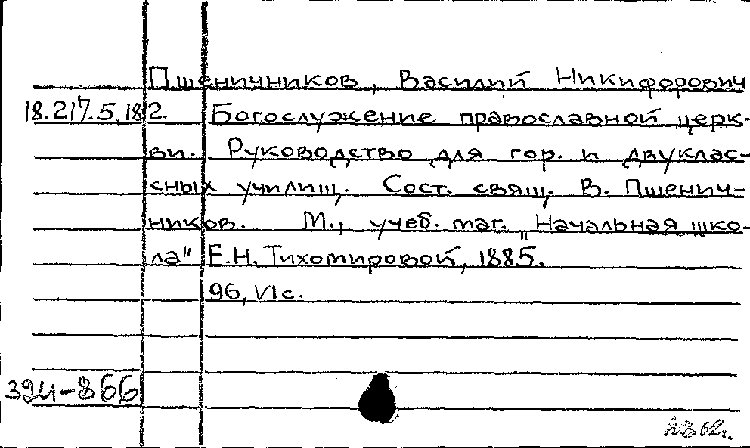 Пшеничников, Василий Никифорович
18.217.5.182. Богослужение православной церк-
ви. Руководство для гор. и двуклас-
сных училищ. Сост. свящ. В. Пшенич-
ников. М., учеб. маг. „Начальная шко-
ла" Е.Н. Тихомировой, 1885.
96, VI с.